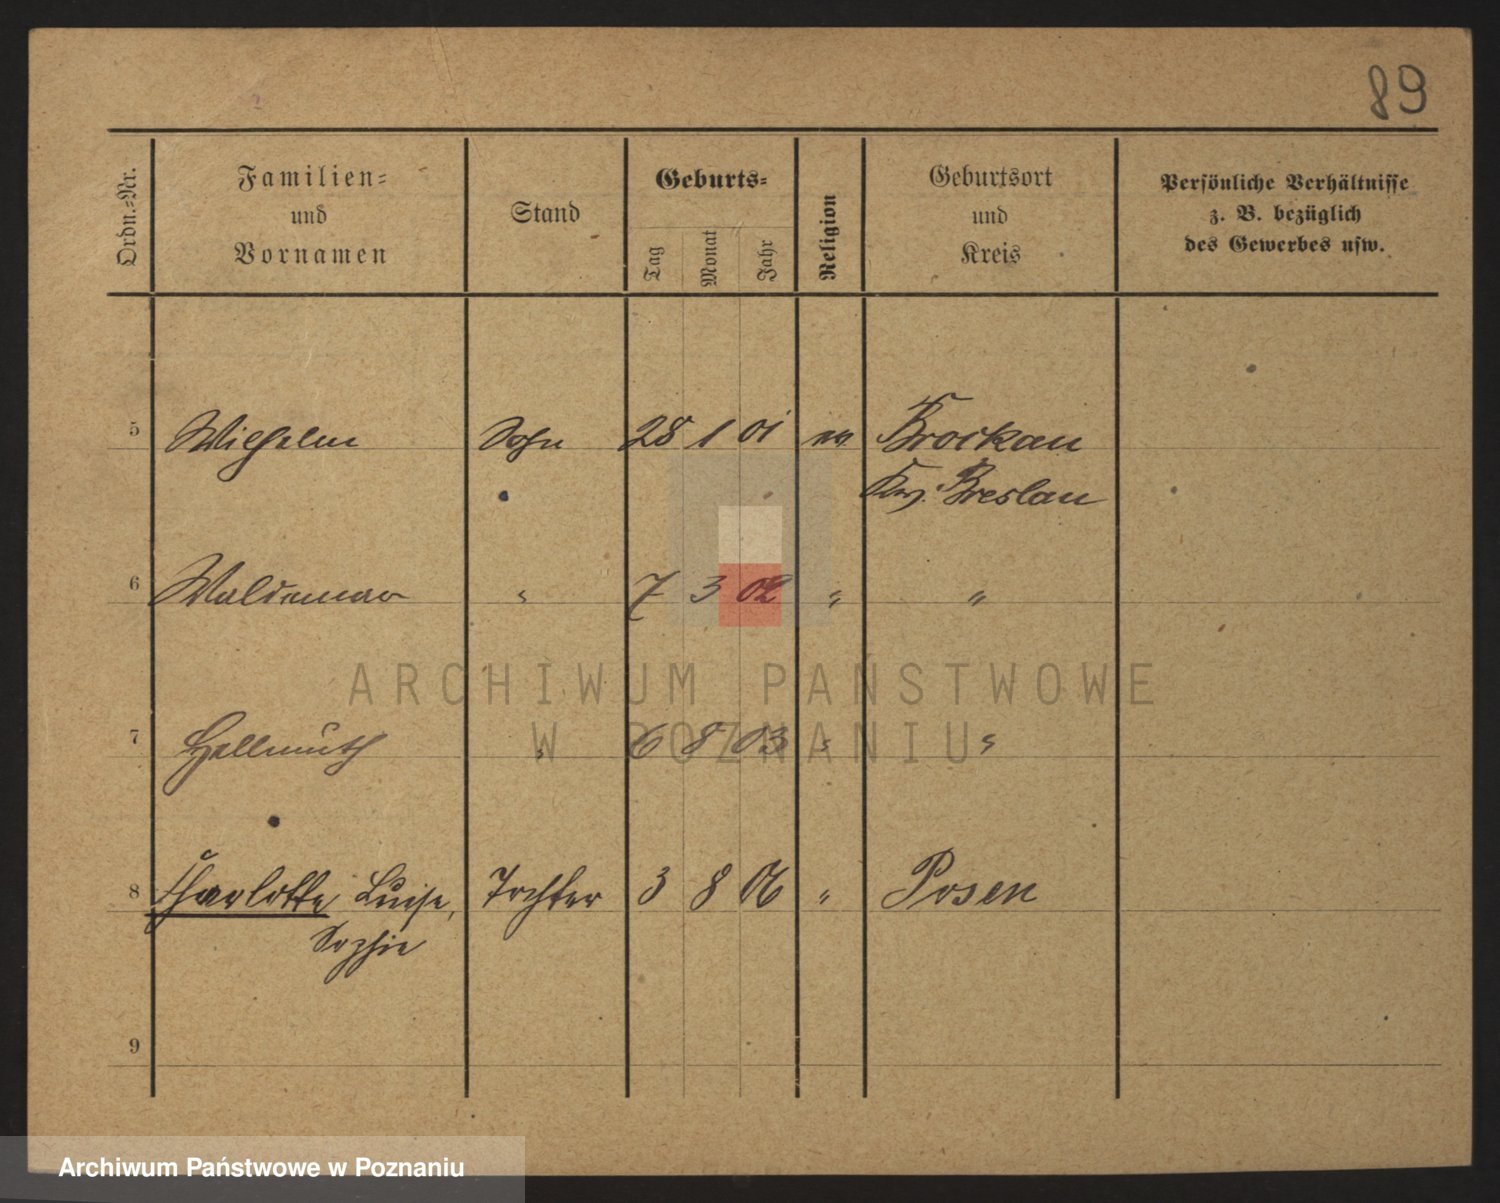 89
Ordn.-Nr.
Familien-
und
Vornamen
Stand
Geburts-
Tag
Monat
Jahr
Religion
Geburtsort
und
Kreis
Persönliche Verhältnisse
z. B. bezüglich
des Gewerbes usw.
5 Wilhelm Sohn 28 1 01 ev Brockau
Krs. Breslau
6 Waldemar " 7 3 02 " "
7 Hellmuth " 6 8 03 " "
8 Charlotte Luise, Tochter 3 8 06 " Posen
Sophie
9
ARCHIWUM PAŃSTWOWE
W POZNANIU
Archiwum Państwowe w Poznaniu